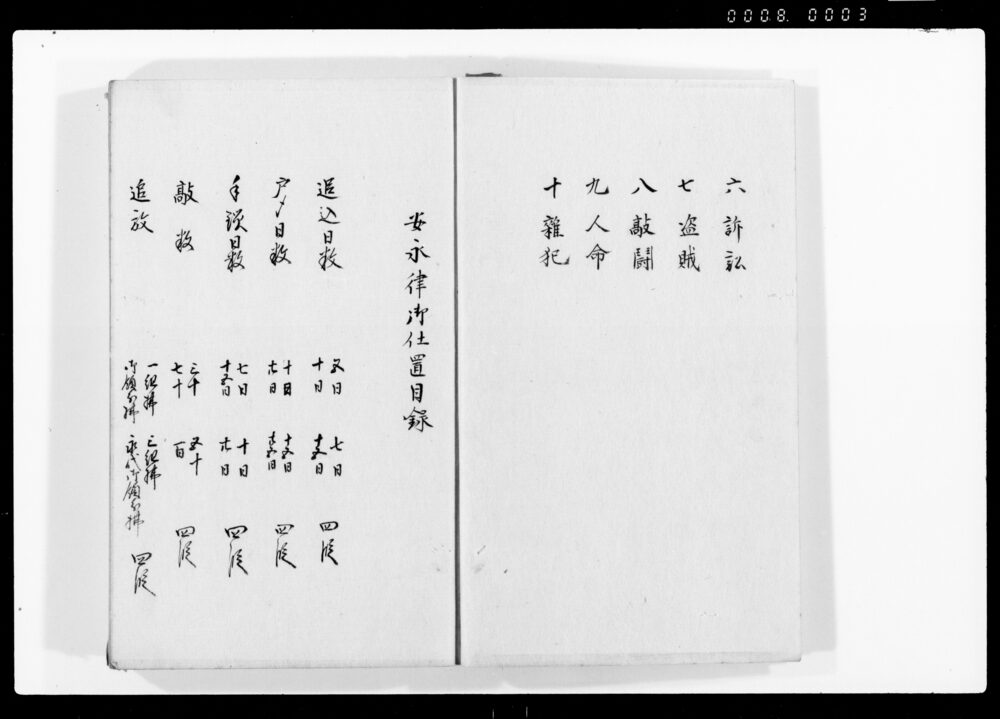 0008. 0003
六 訴訟
七 盗賊
八 敲闘
九 人命
十 雜犯
安永律御仕置目録
追込日数 五日 七日 十日 十五日 四段
戸〆日数 十日 十五日 廿日 廿五日 四段
手鎖日数 七日 十日 十五日 廿日 四段
敲数 三十 五十 七十 百 四段
追放 一組拂 三組拂 御領分拂 永代御領分拂 四段